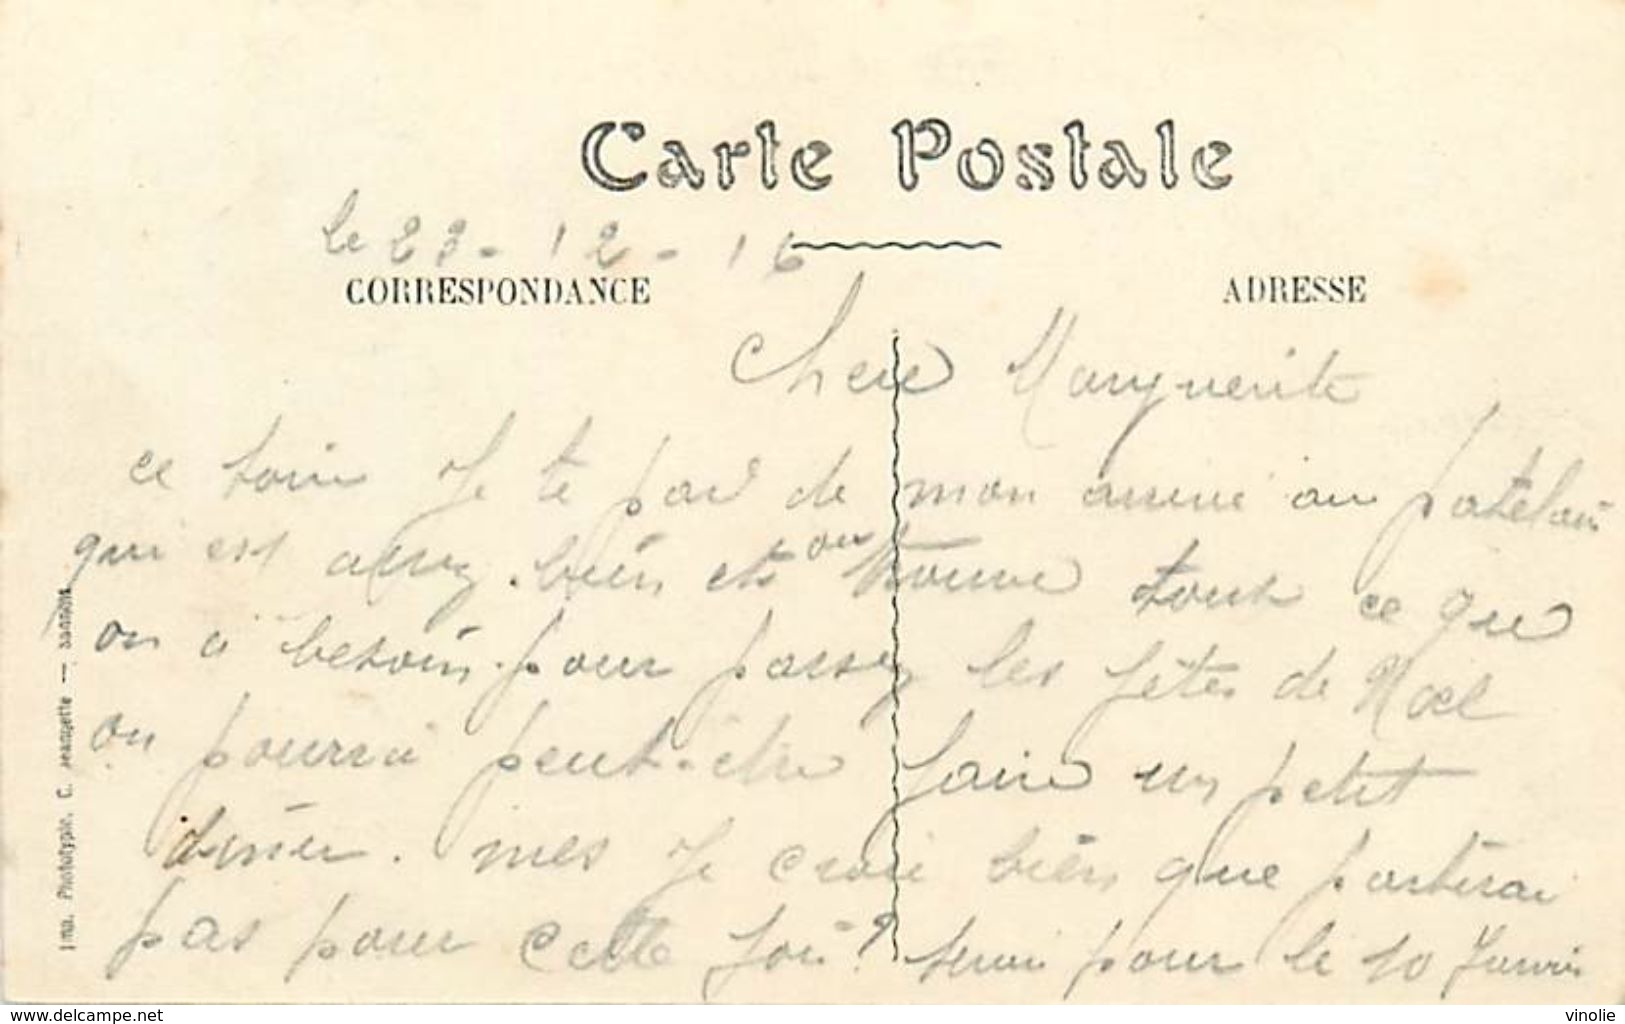 Carte Postale
le 23-12-16
CORRESPONDANCE
ADRESSE
Chere Marguerite
ce soir Je te par de mon arrivé au patelain
qui est assez bien et on trouve tout ce que
on a besoin pour passez les fêtes de Noel
on pourra peut-etre faire un petit
diner. mes Je croi bien que partirai
pas pour cette foi? serai pour le 10 Janvin
Imp. Phototypie. C. Jeangette — SANNOIS
www.delcampe.net
vinolie